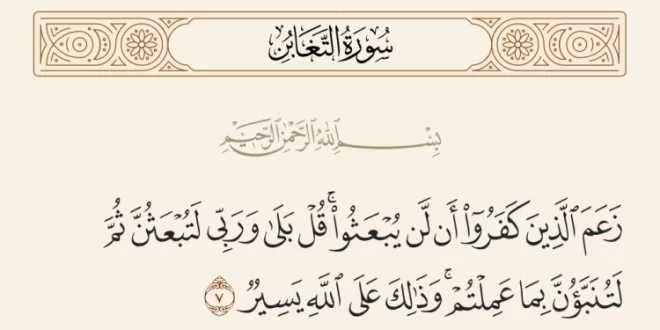 سُورَةُ التَّغَابُنِ
بِسْمِ اللَّهِ الرَّحْمَٰنِ الرَّحِيمِ
زَعَمَ ٱلَّذِينَ كَفَرُوٓا۟ أَن لَّن يُبْعَثُوا۟ ۚ قُلْ بَلَىٰ وَرَبِّى لَتُبْعَثُنَّ ثُمَّ
لَتُنَبَّؤُنَّ بِمَا عَمِلْتُمْ ۚ وَذَٰلِكَ عَلَى ٱللَّهِ يَسِيرٌ ٧